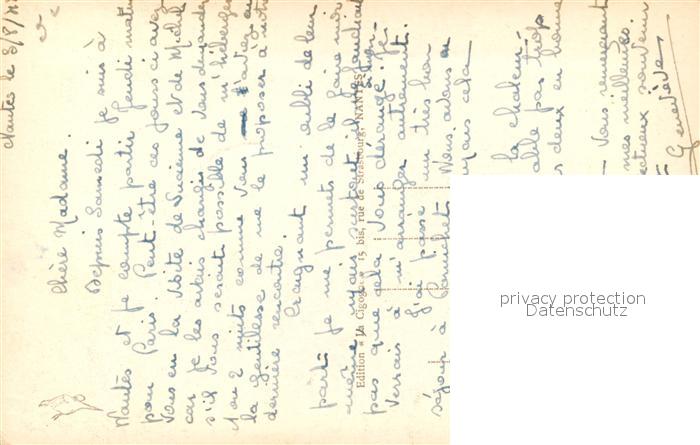 Nantes le 3/8/
Chère Madame.
Depuis Samedi je suis à
Nantes et je compte partir Jeudi matin
pour Paris. Peut-être ces jours-ci avez
Vous eu la visite de et de Michel
car je les avais chargés de Vous demander
s'il Vous serait possible de m'héberger
1 ou 2 nuits comme Vous aviez eu
la gentillesse de me le proposer à notre
dernière rencontre.
Craignant un oubli de leur
part je me permets de le faire moi
même mais surtout il ne faudrait
pas que cela Vous dérange. Je
verrais à m'arranger autrement.
J'ai passé un très bon
séjour à Pornichet Nous avons eu
cela
la chaleur
pas trop
deux en bonne
Vous remerciant
mes meilleures
souvenir
Geneviève
Edition « La Cigogne » 15 bis, rue de Strasbourg, NANTES
privacy protection
Datenschutz